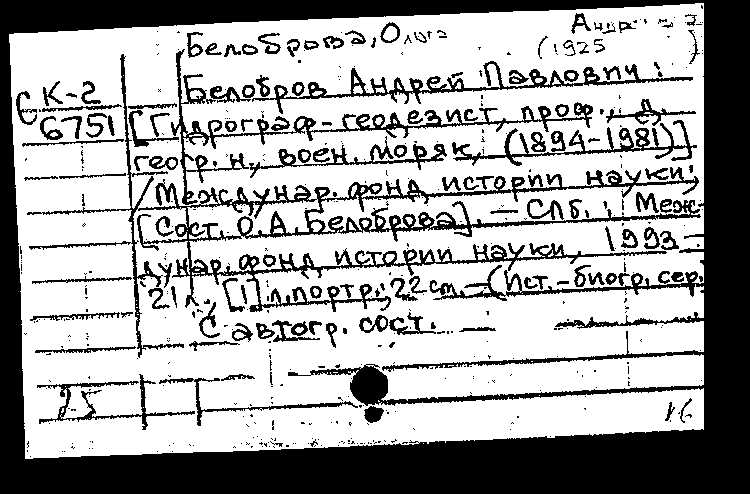 Белоброва, Ольга
(1925 )
Белобров Андрей Павлович:
С К-2
6751
[Гидрограф-геодезист, проф., д.
геогр. н., воен. моряк, (1894-1981)]
/Междунар. фонд истории науки;
[Сост. О.А. Белоброва]. — СПб.: Меж-
дунар. фонд истории науки, 1993 —
21 л., [1] л. портр.; 22 cm. — (Ист.-биогр. сер.
С автогр. сост.
25